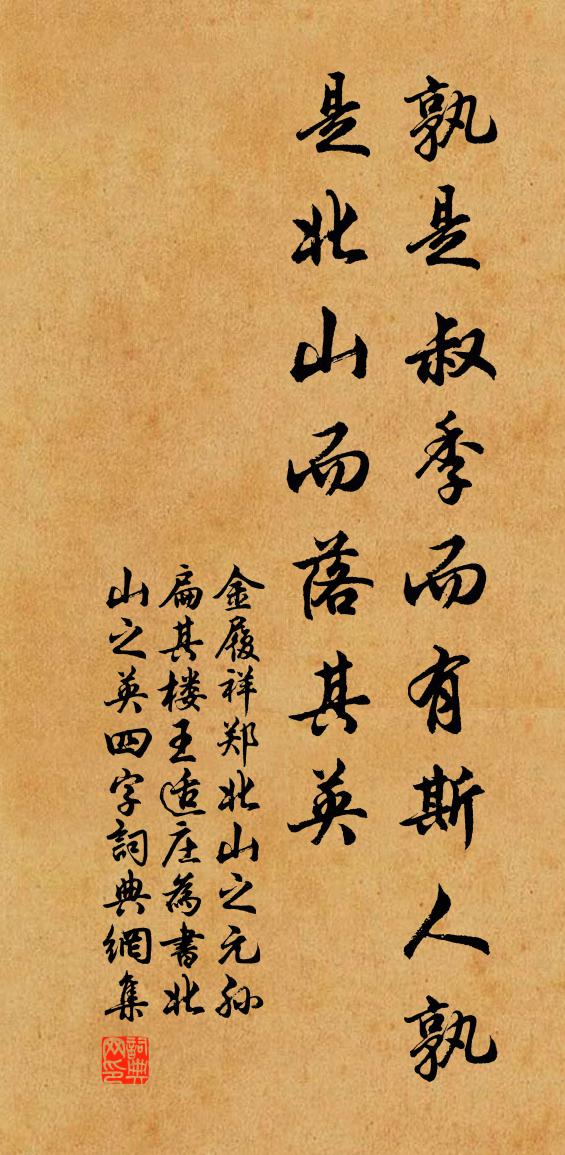 孰是叔季而有斯人孰
是北山而落其英
金履祥郑北山之元孙
扁其楼王适庄為書北
山之英四字詞典網集
詞典网印